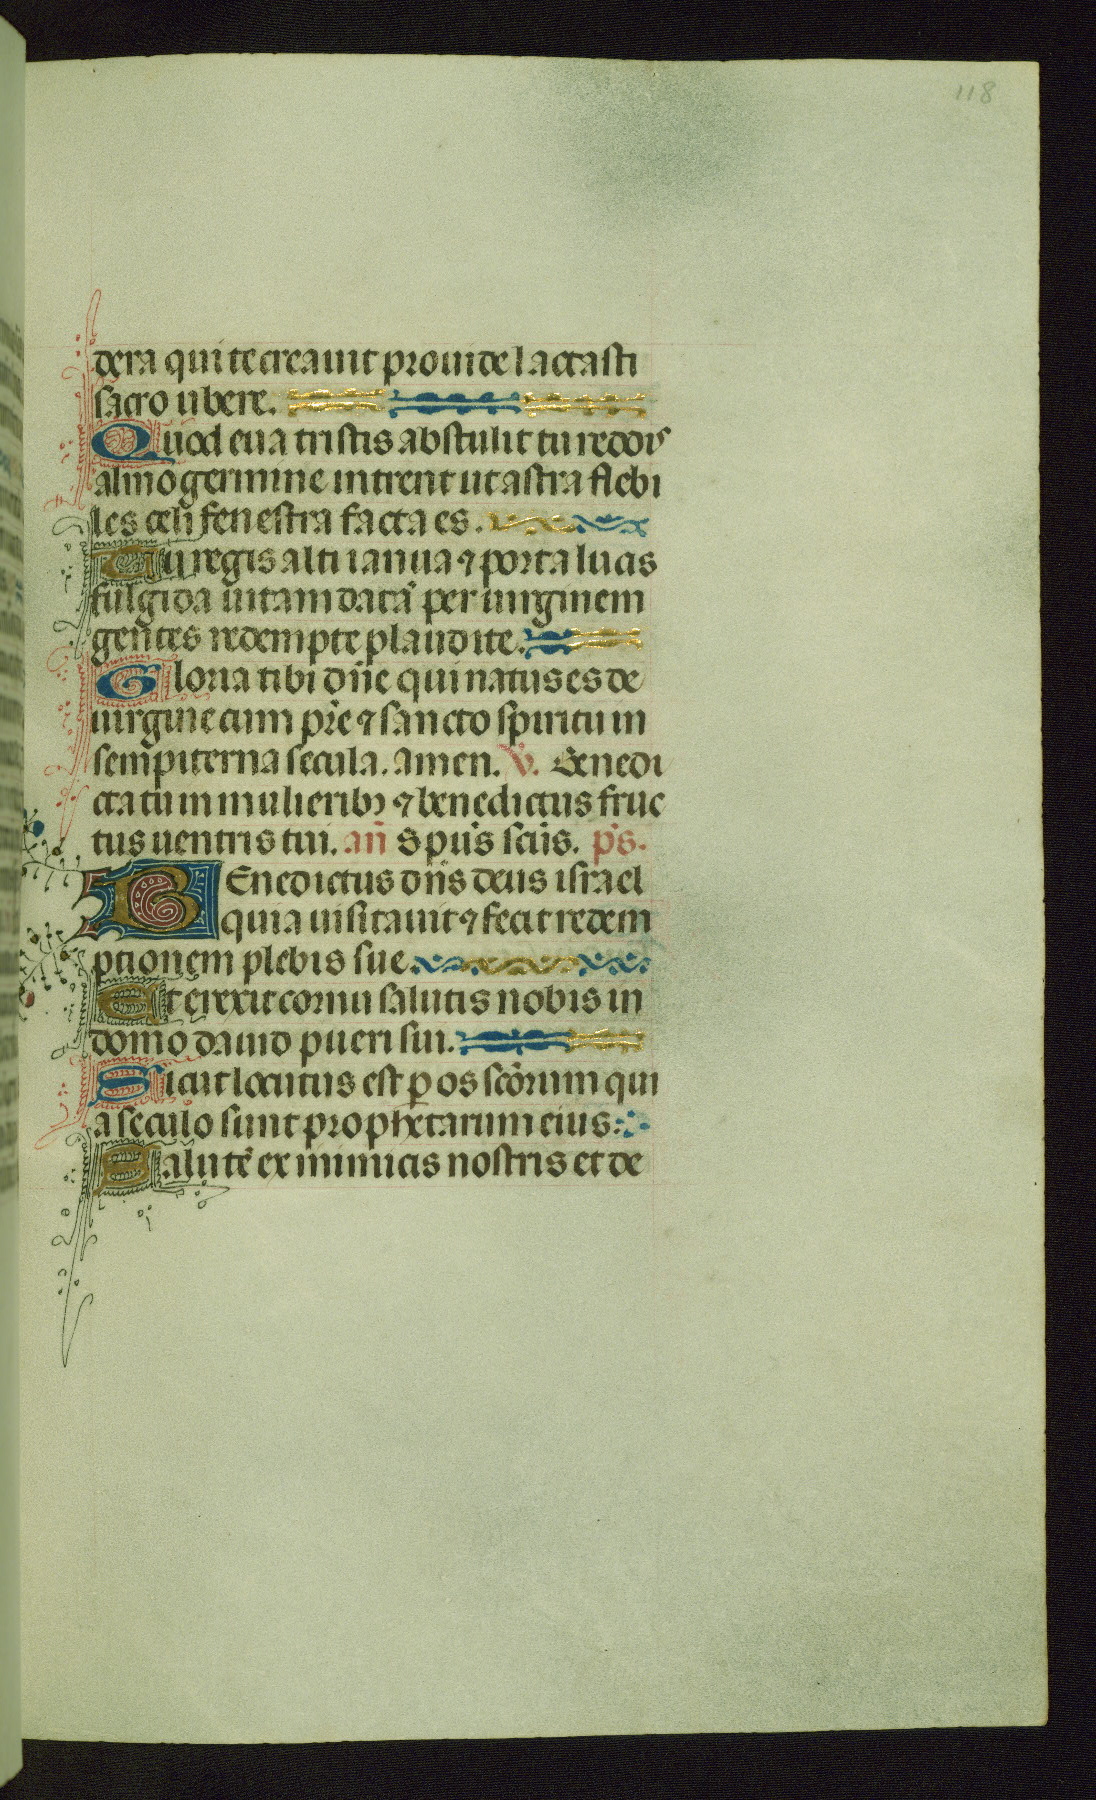 118
dera qui te creauit prouide lactasti
sacro ubere.
Quod eua tristis abstulit tu reddis
almo germine intrent ut astra flebi
les celi fenestra facta es.
Tu regis alti ianua ⁊ porta lucis
fulgida uitam datā per uirginem
gentes redempte plaudite.
Gloria tibi dn̄e qui natus es de
uirgine cum pr̄e ⁊ sancto spiritu in
sempiterna secula. amen. ℣. Benedi
cta tu in mulieribꝫ ⁊ benedictus fruc
tus uentris tui. an̄ Spūs sc̄us. p̄s.
BEnedictus dn̄s deus israel
quia uisitauit ⁊ fecit redem
ptionem plebis sue.
Et erexit cornu salutis nobis in
domo dauid pueri sui.
Sicut locutus est ꝑ os sc̄orum qui
a seculo sunt prophetarum eius.
Salutē ex inimicis nostris et de